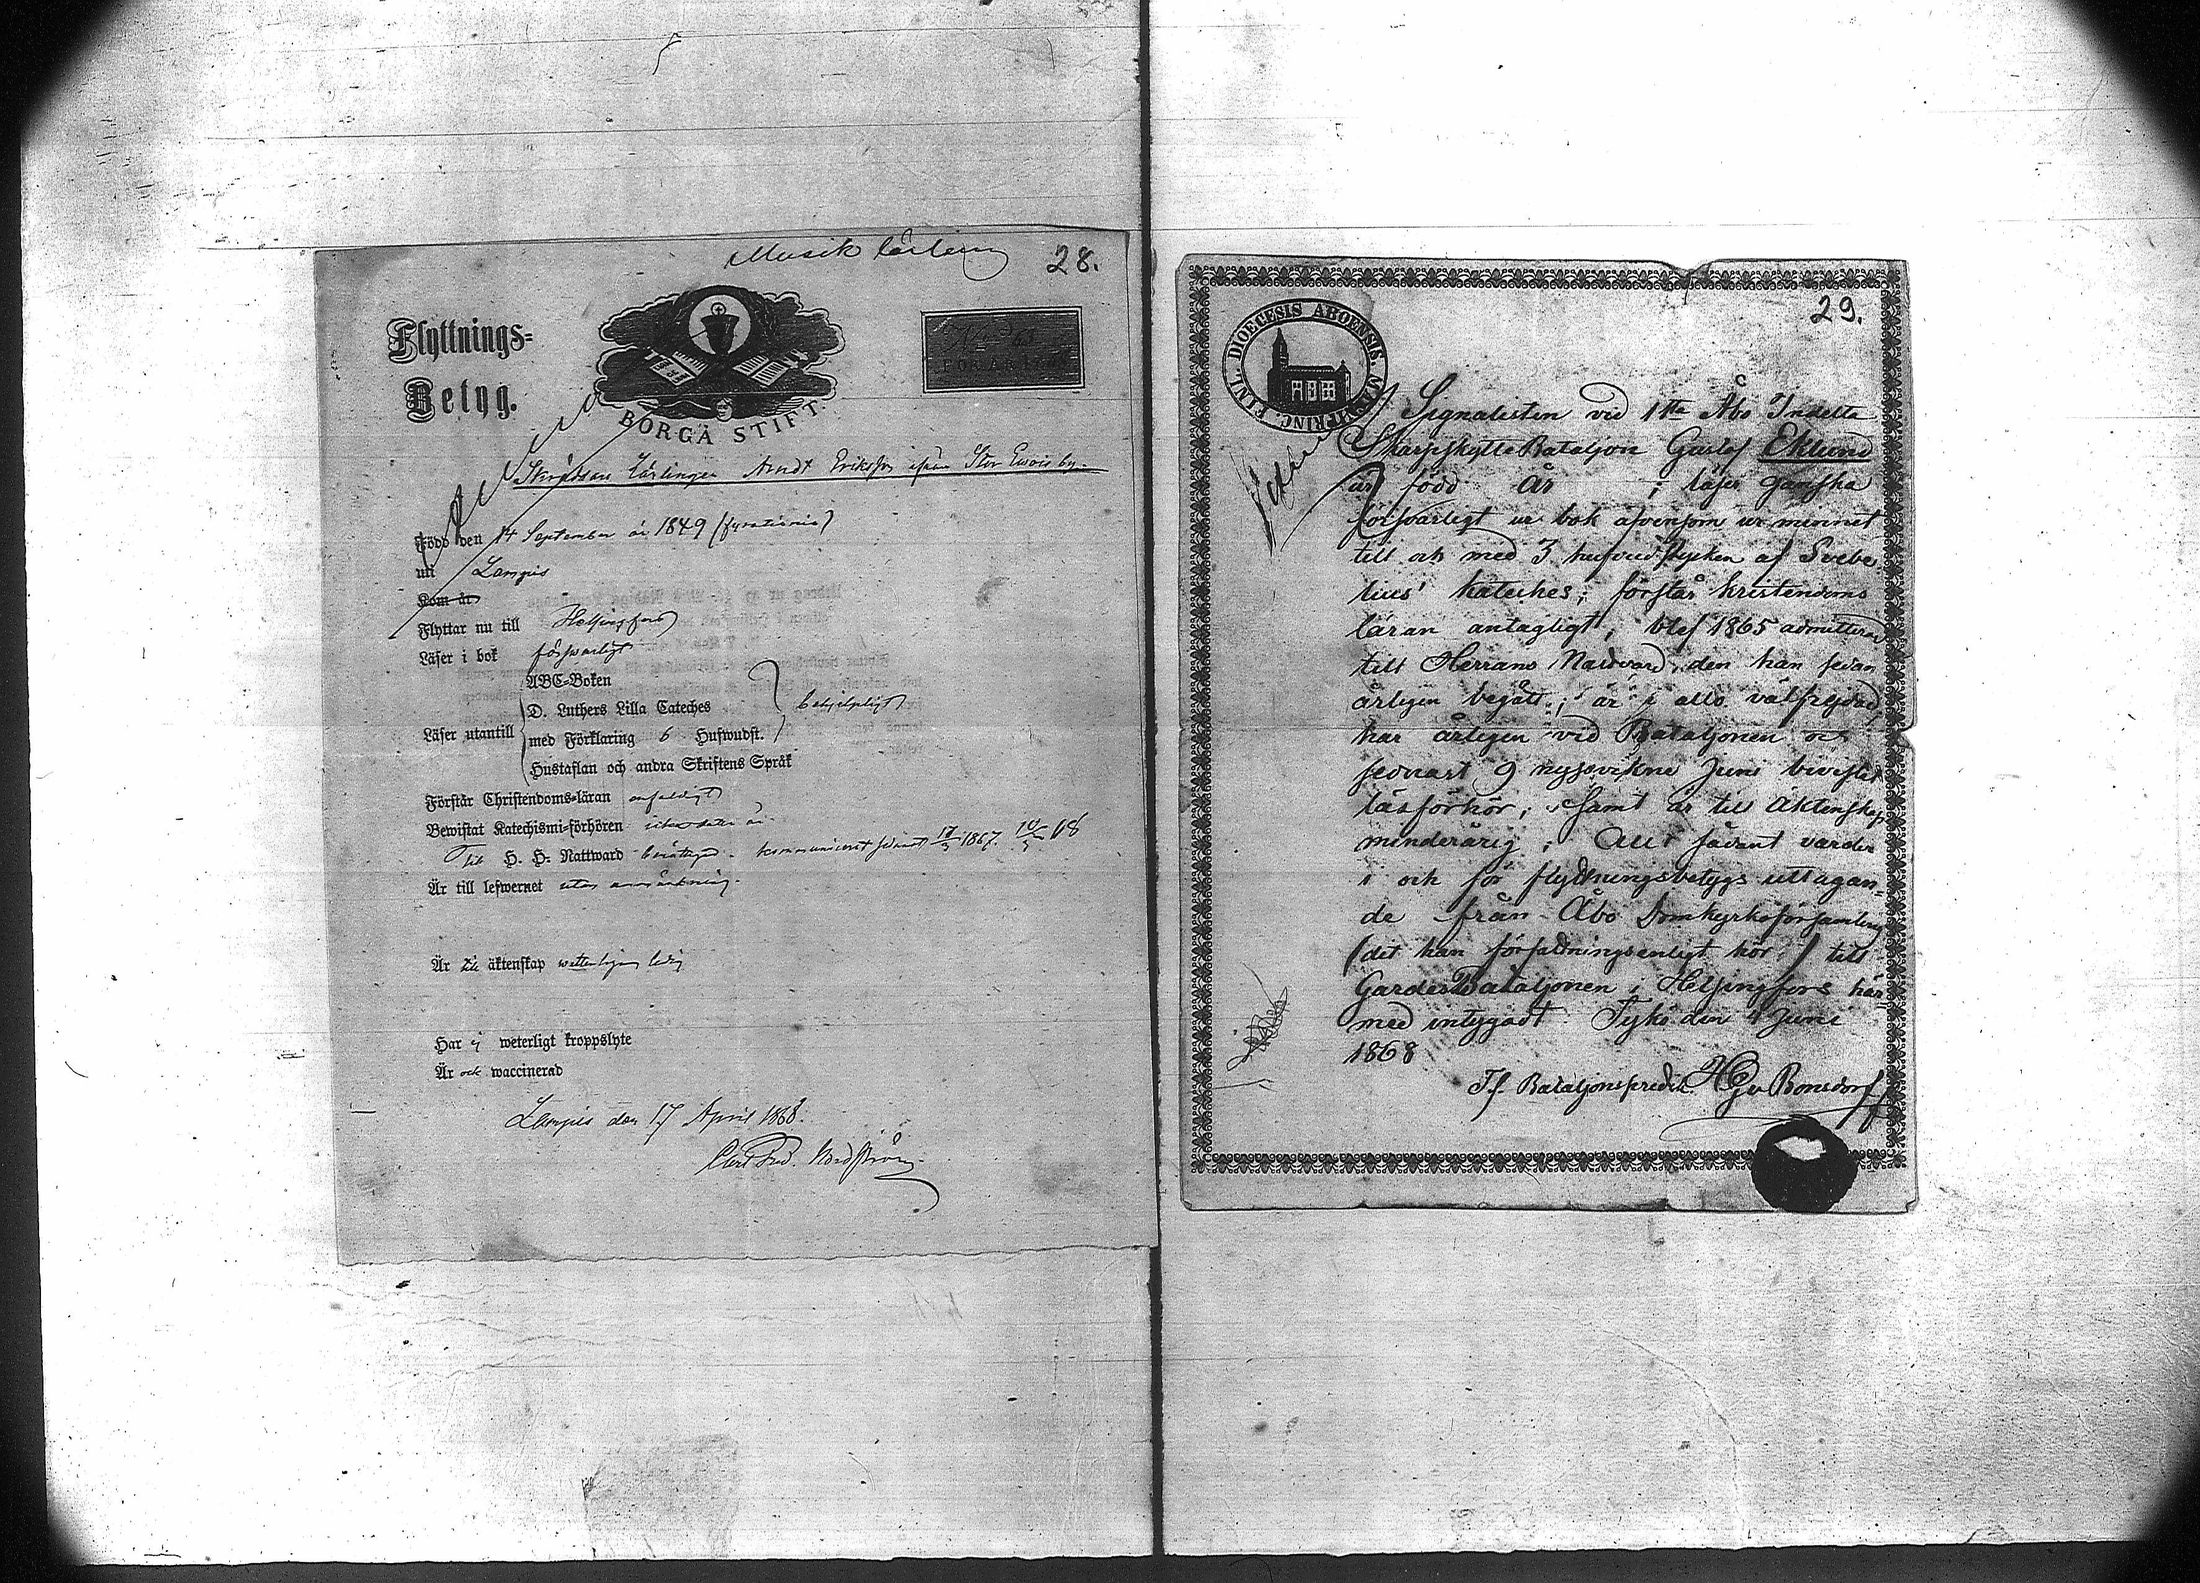 Musik lärling
28.
Flyttnings-
Betyg.
BORGÅ STIFT.
Lärlingen Arndt Eriksson ifrån Stor Evois by.
Född den 14 September år 1849 (fyrationio)
uti Lampis
Kom år
Flyttar nu till Helsingfors
Läser i bok försvarligt
ABC-Boken
D. Luthers Lilla Cateches
behjelpligt
Läser utantill
med Förklaring 6 Hufwudst.
Hustaflan och andra Skriftens Språk
Förstår Christendoms-läran enfaldigt
Bewistat Katechismi-förhören
Till H. H. Nattward berättigad. kommunicerat sednast 1867. 68
Är till lefwernet utan anmärkning.
Är till äktenskap wetterligen ledig
Har ej weterligt kroppslyte
Är ock waccinerad
Lampis den 17 April 1868.
Carl Fred. Nordström
29.
FINL. DIOECESIS ABOENSIS.
Signalisten vid 1sta Åbo Indelta
Skarpskytte Bataljon Gustaf Eklund
är född År ; läser ganska
försvarligt ur bok äfvensom ur minnet
till och med 3 hufvudstycken af Svebe
lius' kateches; förstår kristendoms
läran antagligt; blef 1865 admitterad
till Herrans Nattvard, den han sedan
årligen begått; är i allo välfrejdad,
har årligen vid Bataljonen och
sednast 9 nyssvikne Juni bivistat
läsförhör; samt är till äktenskap
minderårig; Allt såvant varder
i och för flyttningsbetygs uttagan-
de från Åbo Domkyrkoförsamling
(det han författningsenligt hör) till
Gardes Bataljonen i Helsingfors här
med intygadt. Tykö den Juni
1868
T.f. Bataljonspredik. HG v Bonsdorff